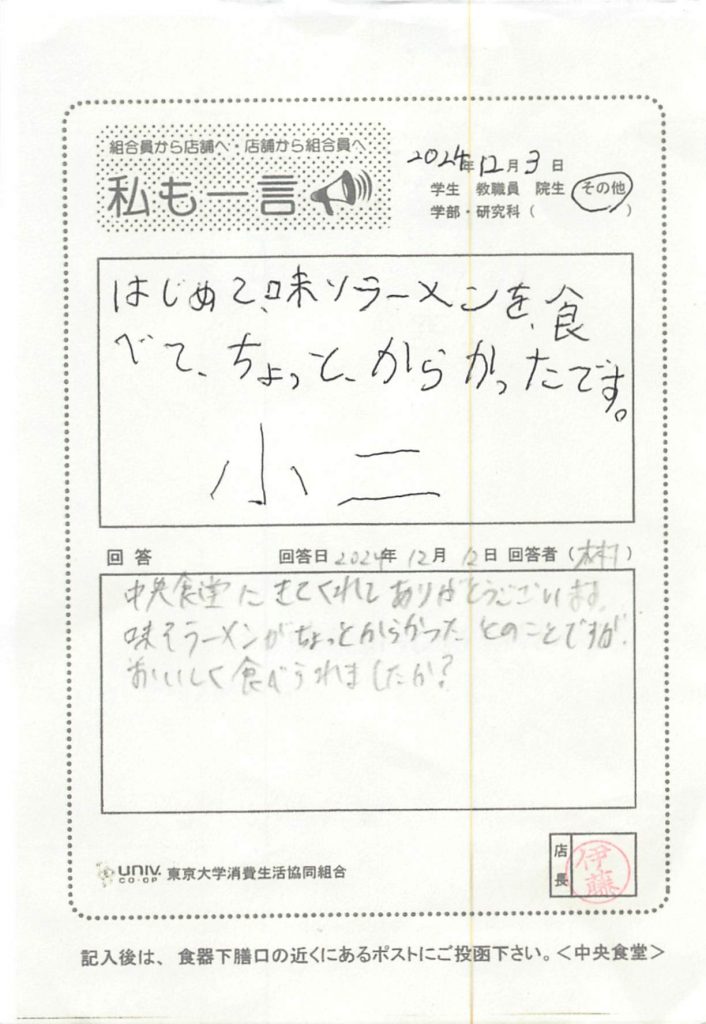 組合員から店舗へ・店舗から組合員へ
私も一言
2024年12月3日
学生 教職員 院生 その他
学部・研究科( )
はじめて、味ソラーメンを、食
べて、ちょっと、からかったです。
小二
回答 回答日 2024年 12月 12日 回答者(木村)
中央食堂にきてくれてありがとうございます。
味そラーメンがちょっとからかったとのことですが、
おいしく食べられましたか?
店長 伊藤
UNIV. CO-OP 東京大学消費生活協同組合
記入後は、食器下膳口の近くにあるポストにご投函下さい。<中央食堂>